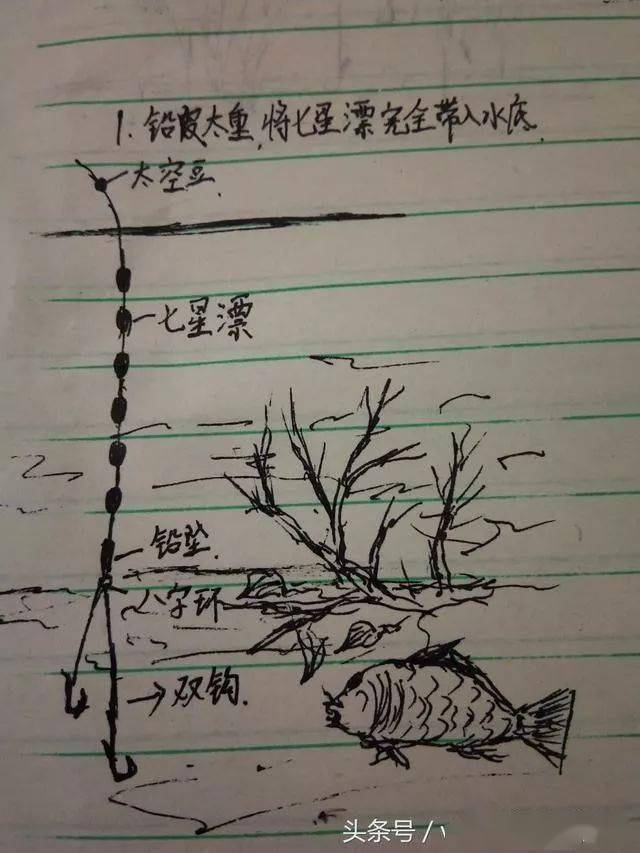 1. 铅霞太重,将七星漂完全带入水底.
太空豆
七星漂
铅坠
八字环
双钩
头条号 / 八